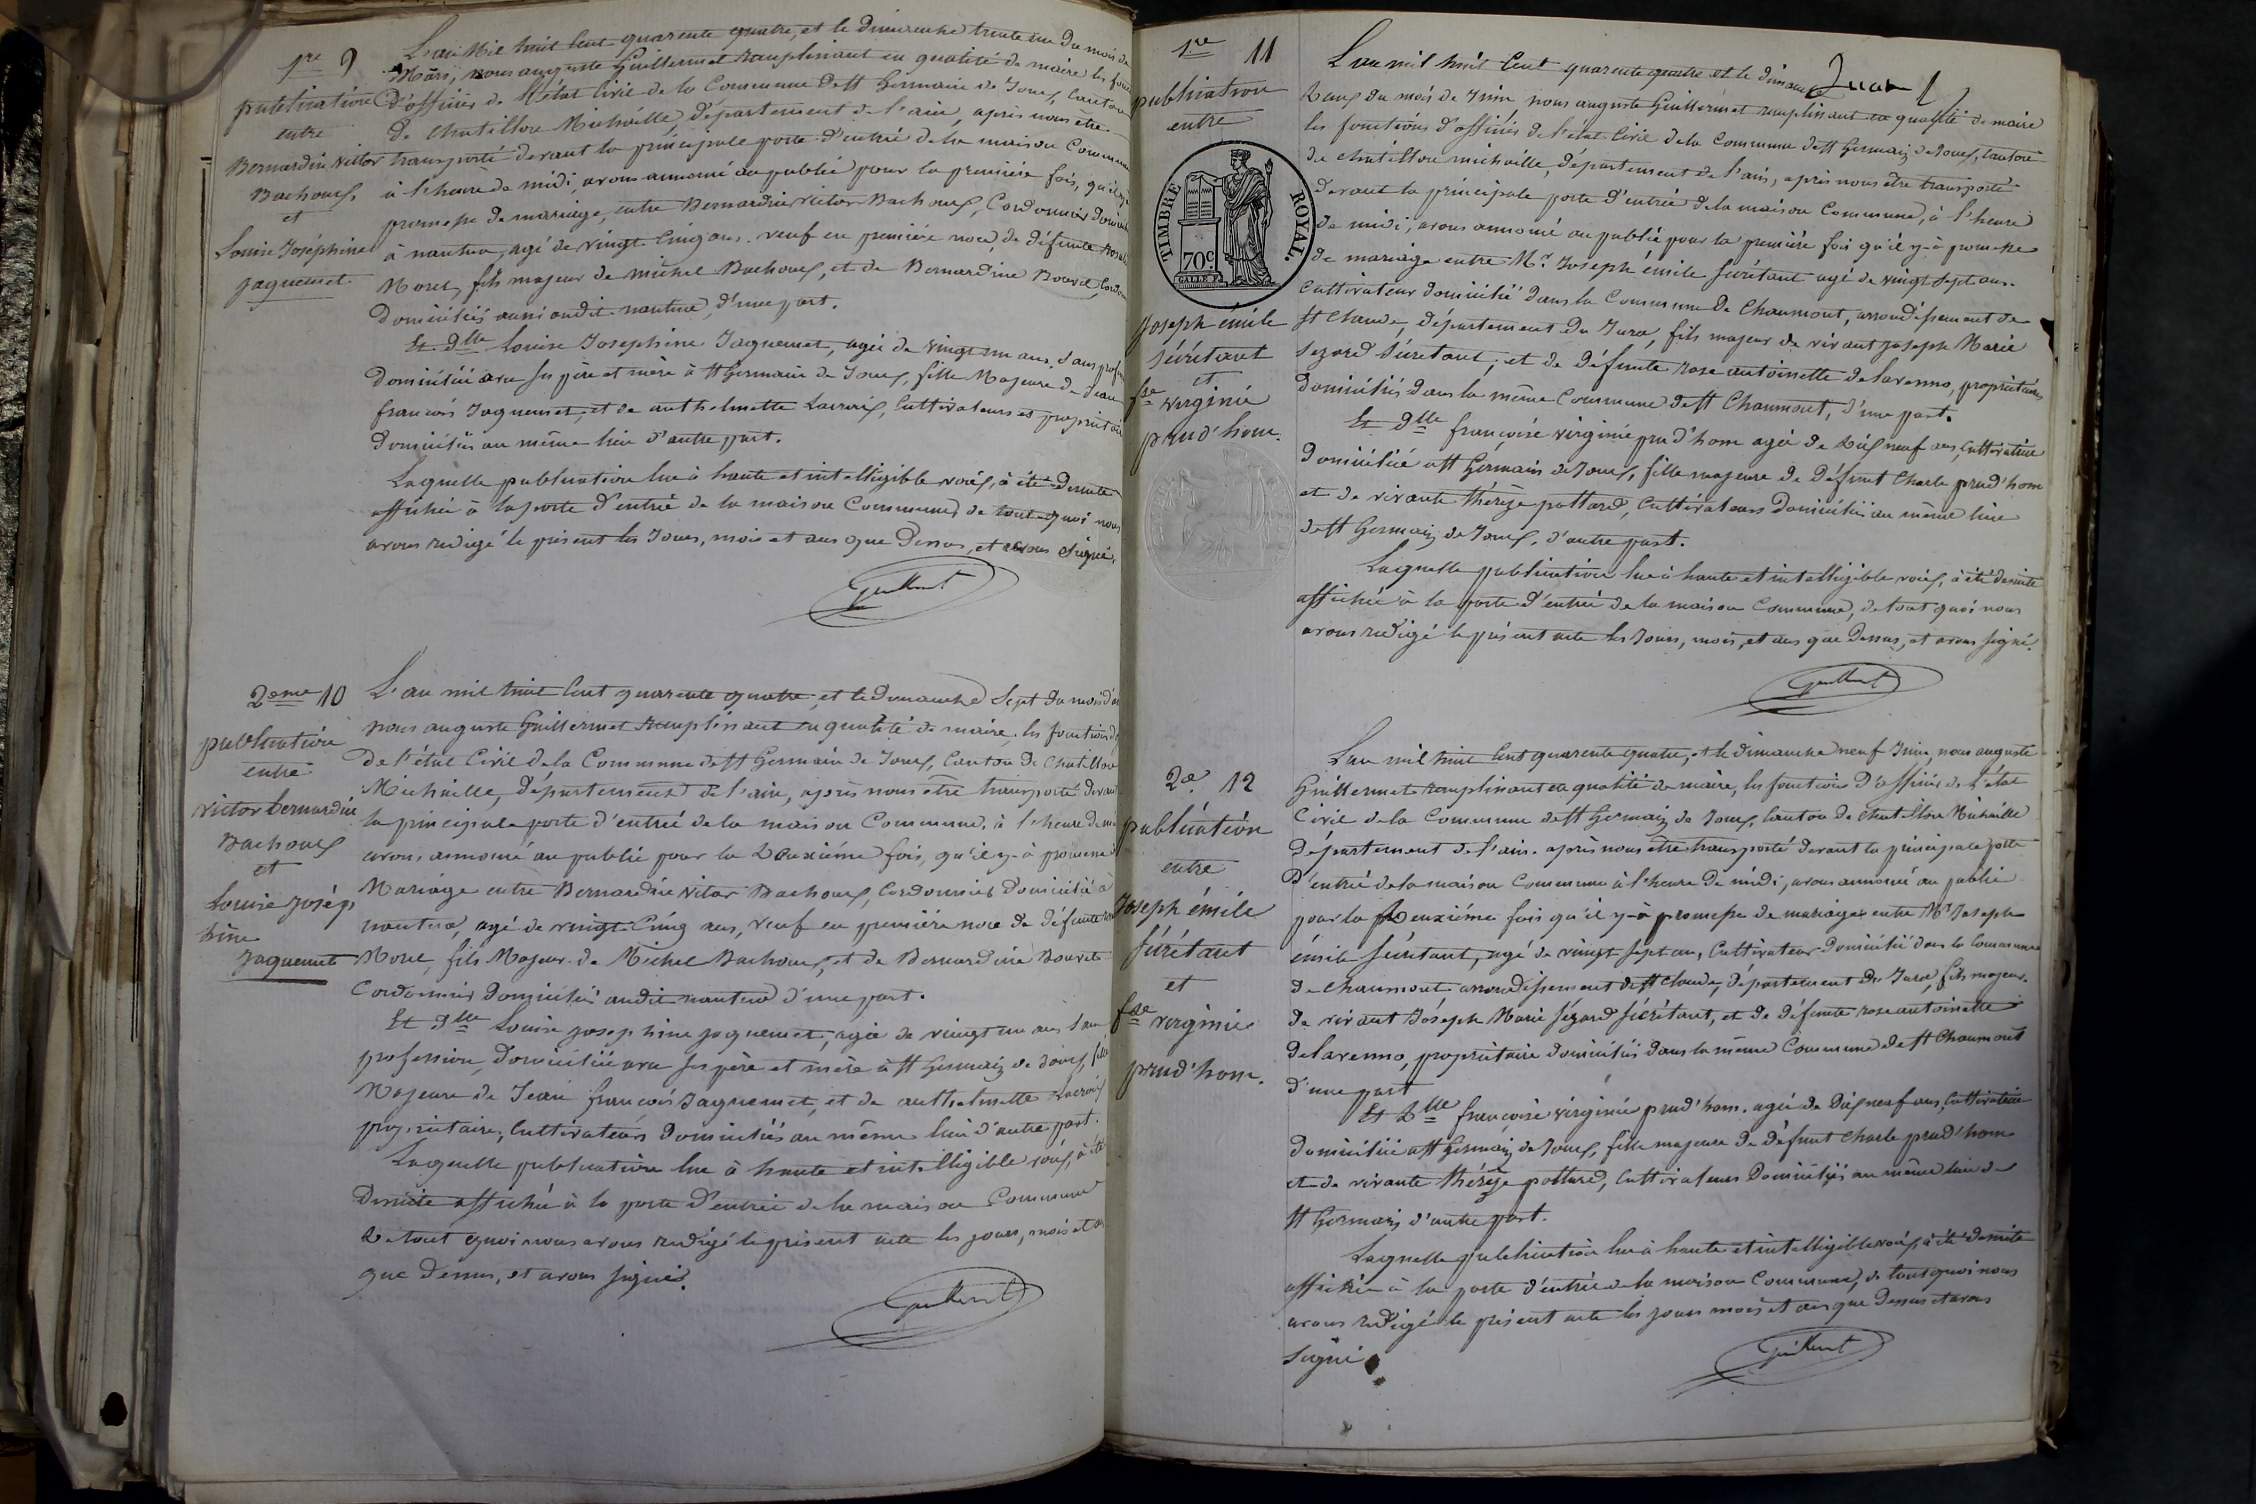 1re 9
publication
entre
Bernardin victor
Bachoux
et
Louise Joséphine
jaquemet
L'an Mil huit Cent quarente quatre, et le Dimanche trente un du mois de
Mars, nous auguste Guillermet remplissant en qualité de maire les fonc
d'officier de l'état Civil de la Commune de St Germain de Joux, Canton
de Chatillon Michaille, département de l'ain, après nous être
transporté devant la principale porte d'entrée de la maison Commune
à l'heure de midi, avons annoncé au publié pour la première fois, qu'il y a
promesse de mariage, entre Bernardin victor Bachoux, Cordonnier domicilié
à nantua, agé de vingt Cinq ans. veuf en première noce de défunte
Morel, fils majeur de michel Bachoux, et de Bernardine Bouvet,
Domiciliés aussi audit nantua, d'une part.
Et Dlle Louise Josephine Jaquemet, agée de vingt un ans, sans profes
Domiciliée avec ses père et mère à St Germain de Joux, fille Majeure de Jean
francois Jaquemet, et de anthelmette Lacroix, Cultivateurs et propriétaires
Domiciliés au même lieu d'autre part.
Laquelle publication lue à haute et intelligible voix, à été desuite
affichée à la porte d'entrée de la maison Commune, de tout quoi nous
avons redigé le présent les Jours, mois et ans que Dessus, et avons Signé.
Guillermet
2eme 10
publication
entre
victor bernardin
Bachoux
et
Louise Josép
hine
Jaquemet
L'an mil huit Cent quarente quatre, et le Dimanche Sept du mois d'a
nous auguste Guillermet remplissant en qualité de maire, les fonctions
de l'état Civil de la Commune de St Germain de Joux, Canton de Chatillon
Michaille, département de l'ain, après nous être transporté devant
la principale porte d'entrée de la maison Commune, à l'heure de mi
avons annoncé au publié pour la Deuxième fois, qu'il y a promesse
Mariage entre Bernardin victor Bachoux, Cordonnier Domicilié à
nantua, agé de vingt Cinq ans, veuf en première noce de défunte
Morel, fils Majeur de Michel Bachoux, et de Bernardine Bouvet
Cordonnier Domiciliés audit nantua d'une part.
Et Dlle Louise josephine jaquemet, agée de vingt un ans Sans
profession, Domiciliée avec ses père et mère à St Germain de Joux, fille
Majeure de Jean francois Jaquemet, et de anthelmette Lacroix
propriétaires, Cultivateurs Domiciliés au même lieu d'autre part.
Laquelle publication lue à haute et intelligible voix, à été
Desuite affichée à la porte d'entrée de la maison Commune
De tout quoi nous avons redigé le présent acte les jours, mois et an
que Dessus, et avons signé.
Guillermet
1re 11
publication
entre
TIMBRE ROYAL.
70c
Joseph émile
Sécrétant
et
fse virginie
prud'hom.
L'an mil huit Cent quarente quatre et le dimanche
Deux du mois de Juin, nous auguste Guillermet remplissant en qualité de maire
les fonctions d'officier de l'état Civil de la Commune de St Germain de Joux, Canton
de chatillon michaille, département de l'ain, après nous être transporté
devant la principale porte d'entrée de la maison Commune, à l'heure
de midi, avons annoncé au publié pour la première fois qu'il y à promesse
de mariage entre Mr Joseph émile Sécrétant agé de vingt Sept ans.
Cultivateur domicilié dans la Commune De Chaumont, arrondissement de
St Claude, département du Jura, fils majeur de vivant Joseph Marie
Sezard Sécretant, et de Défunte rose antoinette delavenno, propriétaires
Domiciliés dans la même Commune de St Chaumont, d'une part.
Et Dlle francoise virginie prud'hom agée de Dix neuf ans, Cultivatrice
Domiciliée à St Germain de Joux, fille majeure de Défunt Charle prud'hom
et de vivante thérèse pottard, Cultivateurs Domiciliés au même lieu
de St Germain de Joux, d'autre part.
Laquelle publication lue à haute et intelligible voix, à été desuite
affichée à la porte d'entrée de la maison Commune, de tout quoi nous
avons redigé le présent acte les Jours, mois, et ans que Dessus, et avons signé.
Guillermet
2e 12
publication
entre
Joseph émile
Sécrétant
et
fse virginie
prud'hom.
L'an mil huit Cent quarente quatre, et le dimanche neuf Juin, nous auguste
Guillermet remplissant en qualité de maire, les fonctions d'officier de l'état
Civil de la Commune de St Germain de Joux, Canton de chatillon Michaille
Département de l'ain. après nous être transporté devant la principale porte
D'entrée de la maison Commune à l'heure De midi, avons annoncé au publié
pour la Deuxième fois qu'il y à promesse de mariage entre Mr Joseph
émile Sécrétant, agé de vingt sept ans, Cultivateur Domicilié dans la Commune
de chaumont, arrondissement de St claude, département du Jura, fils majeur
de vivant Joséph Marie Sézard Sécrétant, et de défunte rose antoinette
delavenno, propriétaire domiciliés dans la même Commune de St Chaumont
d'une part
Et Dlle francoise virginie prud'hom. agée de Dix neuf ans, Cultivatrice
Domiciliée à St Germain de Joux, fille majeure de défunt Charle prud'hom
et de vivante thérèse pottard, Cultivateurs Domiciliés au même lieu de
St Germain d'autre part.
Laquelle publication lue à haute et intelligible voix à été desuite
affichée à la porte d'entrée de la maison Commune, de tout quoi nous
avons redigé le présent acte les jours mois et ans que Dessus et avons
Signé.
Guillermet